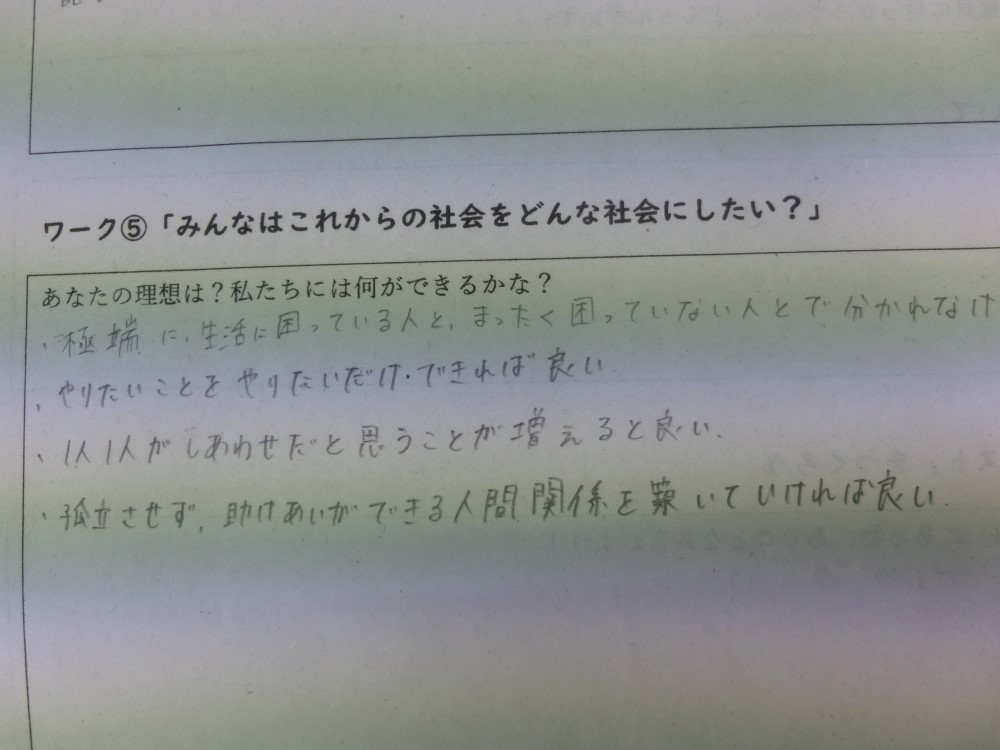 ワーク⑤「みんなはこれからの社会をどんな社会にしたい？」
あなたの理想は？私たちには何ができるかな？
・極端に、生活に困っている人と、まったく困っていない人とで分かれなけ
・やりたいことをやりたいだけ・できれば良い
・1人1人がしあわせだと思うことが増えると良い。
・孤立させず、助けあいができる人間関係を築いていければ良い.